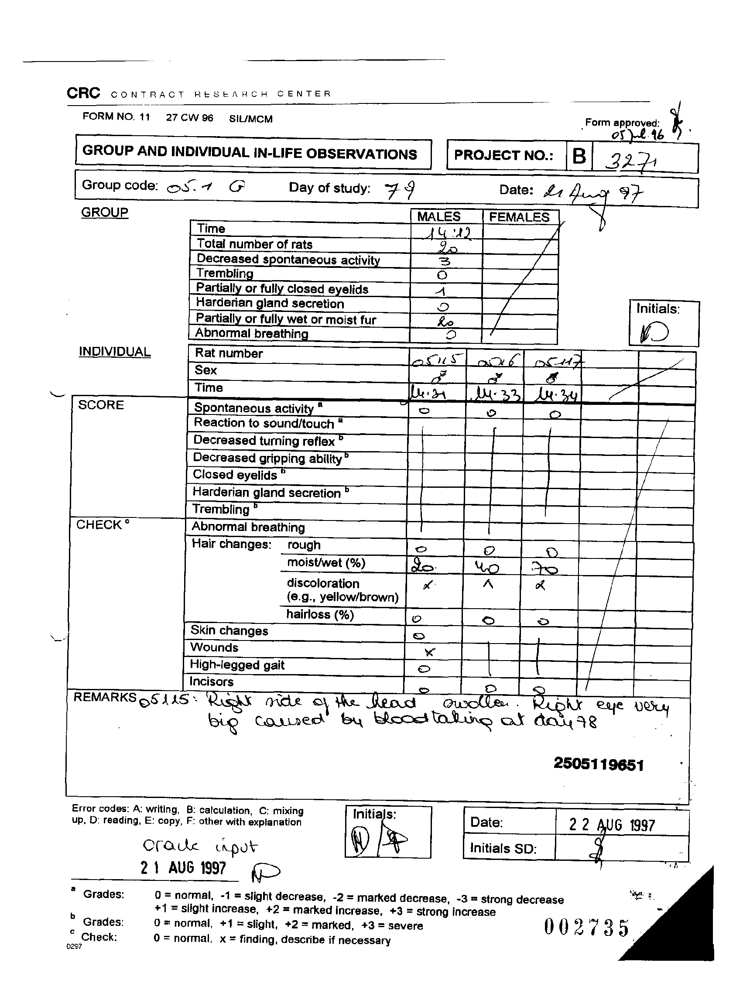 CRC CONTRACT RESEARCH CENTER
FORM NO. 11 27 CW 96 SIL/MCM
Form approved:
05 Jul 96
GROUP AND INDIVIDUAL IN-LIFE OBSERVATIONS PROJECT NO.: B 3271
Group code: 05.1 G Day of study: 79 Date: 21 Aug 97
GROUP MALES FEMALES
Time 14:12
Total number of rats 20
Decreased spontaneous activity 3
Trembling 0
Partially or fully closed eyelids 1
Harderian gland secretion 0
Partially or fully wet or moist fur 20
Abnormal breathing 0
Initials:
INDIVIDUAL Rat number 05115 05116 05117
Sex ♂ ♂ ♂
Time 14.31 14.33 14.34
SCORE Spontaneous activity a 0 0 0
Reaction to sound/touch a
Decreased turning reflex b
Decreased gripping ability b
Closed eyelids b
Harderian gland secretion b
Trembling b
CHECK c Abnormal breathing
Hair changes: rough 0 0 0
moist/wet (%) 20 40 70
discoloration x x
(e.g., yellow/brown)
hairloss (%) 0 0 0
Skin changes 0
Wounds x
High-legged gait 0
Incisors 0 0 0
REMARKS 05115: Right side of the head swollen. Right eye very
big caused by bloodtaking at day 78
2505119651
Error codes: A: writing, B: calculation, C: mixing
up, D: reading, E: copy, F: other with explanation
Initials:
Date: 22 AUG 1997
Initials SD:
Oracle input
21 AUG 1997
a Grades: 0 = normal, -1 = slight decrease, -2 = marked decrease, -3 = strong decrease
+1 = slight increase, +2 = marked increase, +3 = strong increase
b Grades: 0 = normal, +1 = slight, +2 = marked, +3 = severe
c Check: 0 = normal, x = finding, describe if necessary
0297
002735